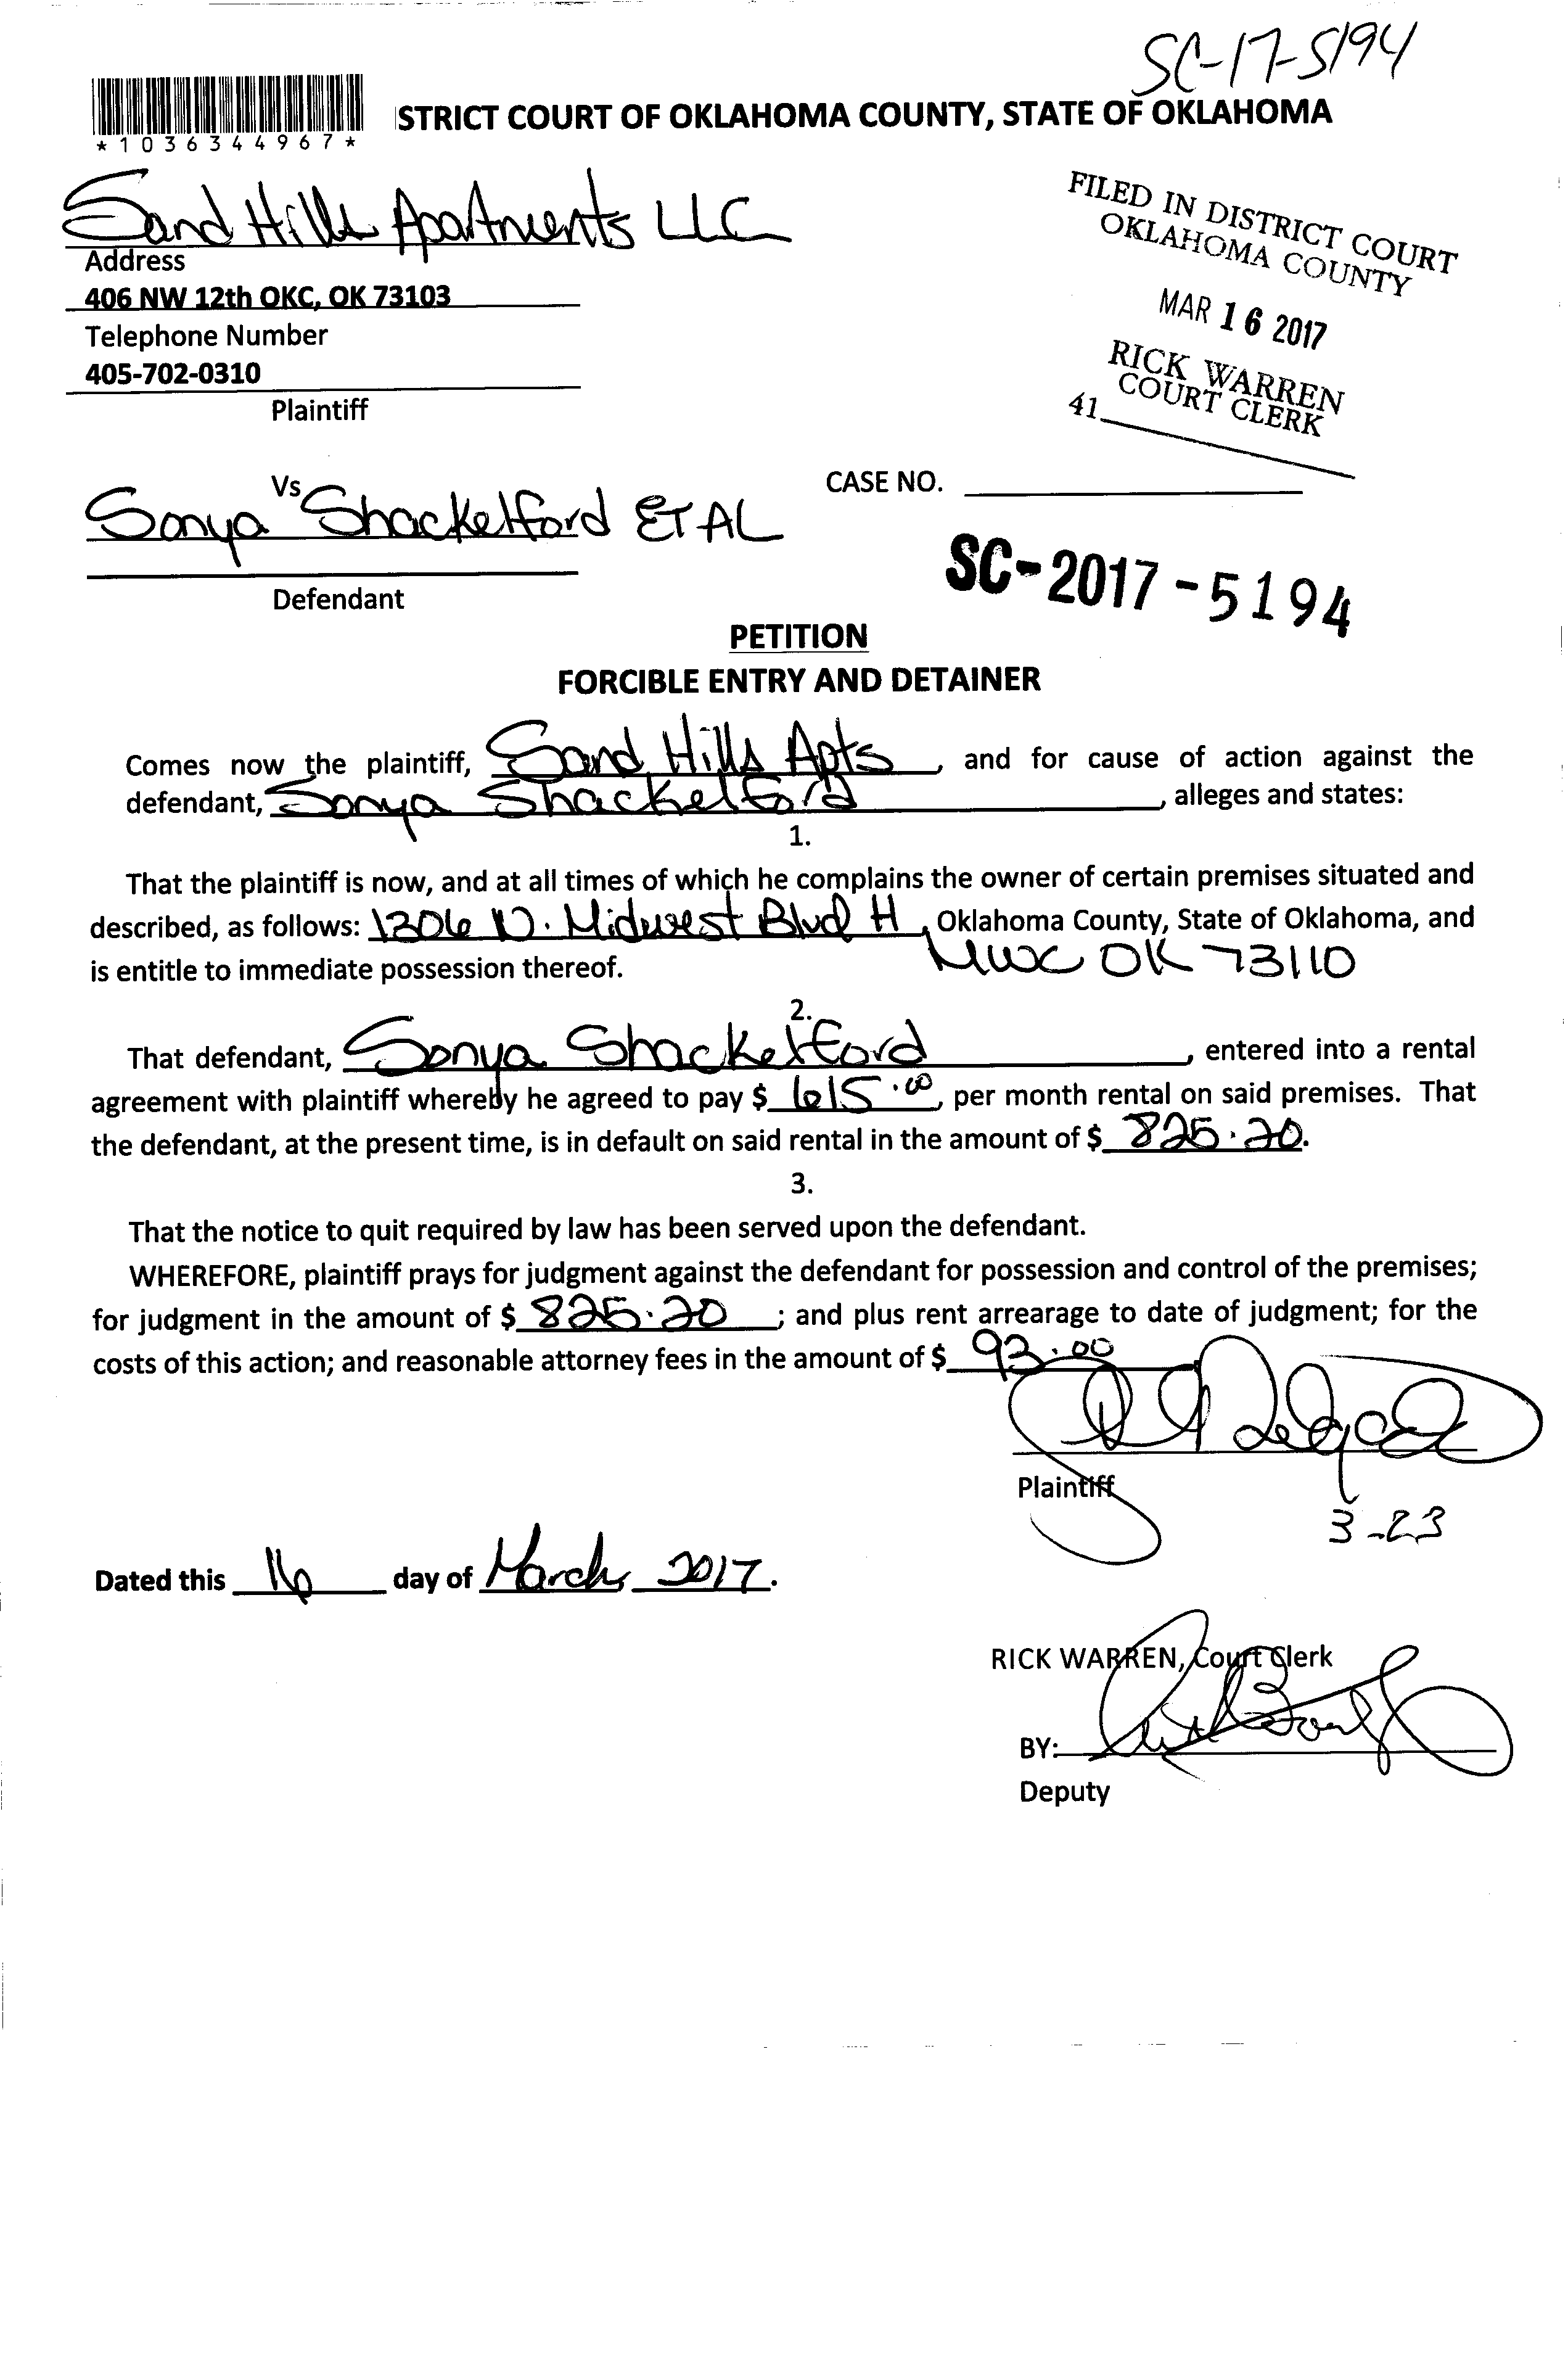 SC-17-5194
STRICT COURT OF OKLAHOMA COUNTY, STATE OF OKLAHOMA
*1036344967*
Sand Hills Apartments LLC
Address
406 NW 12th OKC, OK 73103
Telephone Number
405-702-0310
Plaintiff
FILED IN DISTRICT COURT
OKLAHOMA COUNTY
MAR 16 2017
RICK WARREN
COURT CLERK
41
Vs
Sonya Shackelford ET AL
Defendant
CASE NO.
SC-2017-5194
PETITION
FORCIBLE ENTRY AND DETAINER
Comes now the plaintiff, Sand Hills Apts, and for cause of action against the
defendant, Sonya Shackelford, alleges and states:
1.
That the plaintiff is now, and at all times of which he complains the owner of certain premises situated and
described, as follows: 1306 N. Midwest Blvd H, Oklahoma County, State of Oklahoma, and
MWC OK 73110
is entitle to immediate possession thereof.
2.
That defendant, Sonya Shackelford, entered into a rental
agreement with plaintiff whereby he agreed to pay $ 615.00, per month rental on said premises. That
the defendant, at the present time, is in default on said rental in the amount of $ 825.20.
3.
That the notice to quit required by law has been served upon the defendant.
WHEREFORE, plaintiff prays for judgment against the defendant for possession and control of the premises;
for judgment in the amount of $ 825.20; and plus rent arrearage to date of judgment; for the
costs of this action; and reasonable attorney fees in the amount of $ 93.00
Plaintiff
3-23
Dated this 16 day of March 2017.
RICK WARREN, Court Clerk
BY:
Deputy